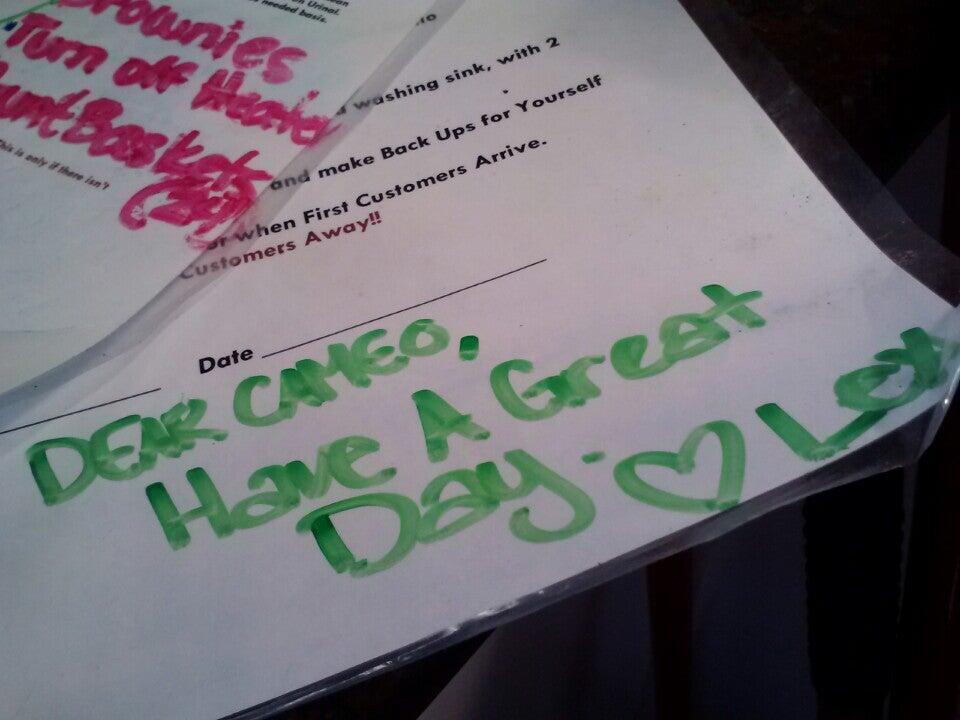 on Urinal.
needed basis.
Brownies
Turn off Heater
Count Basket
This is only if there isn't
washing sink, with 2
and make Back Ups for Yourself
or when First Customers Arrive.
Customers Away!!
Date
DEAR CAMEO,
Have A Great
Day. ♡ Lex